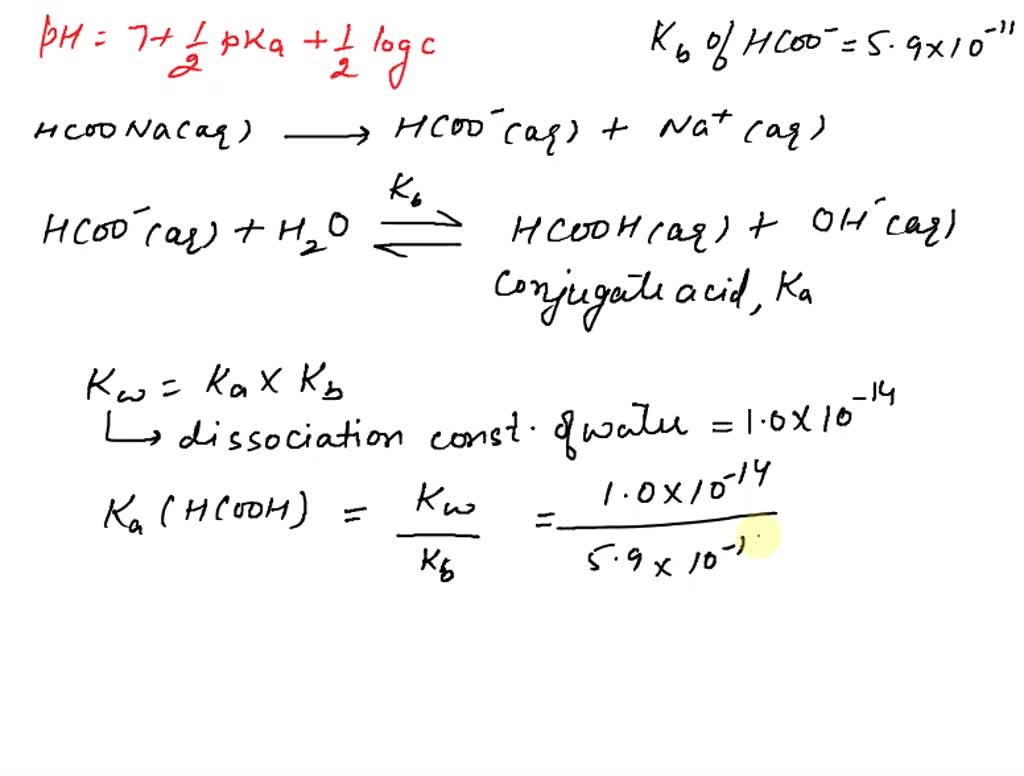 pH = 7 + 1/2 pKa + 1/2 log c
Kb of HCOO⁻ = 5.9 x 10⁻¹¹
HCOONa(aq) ⟶ HCOO⁻(aq) + Na⁺(aq)
Kb
HCOO⁻(aq) + H₂O ⇌ HCOOH(aq) + OH⁻(aq)
Conjugate acid, Ka
Kw = Ka x Kb
↳ dissociation const. of water = 1.0 x 10⁻¹⁴
Ka (HCOOH) = Kw/Kb = 1.0 x 10⁻¹⁴/5.9 x 10⁻¹